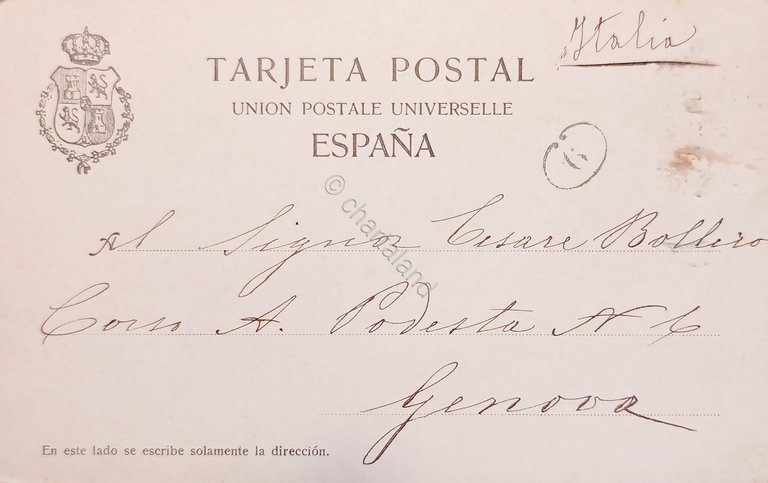 Italia
TARJETA POSTAL
UNION POSTALE UNIVERSELLE
ESPAÑA
© chamaland
Al Signor Cesare Bollero
Corso A. Podesta N 6
Genova
En este lado se escribe solamente la dirección.